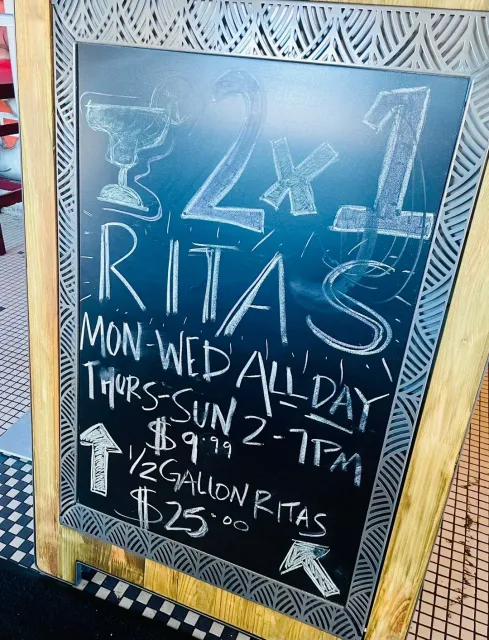 2x1
RITAS
MON-WED ALL DAY
THURS-SUN 2-7PM
$9.99
1/2 GALLON RITAS
$25.00